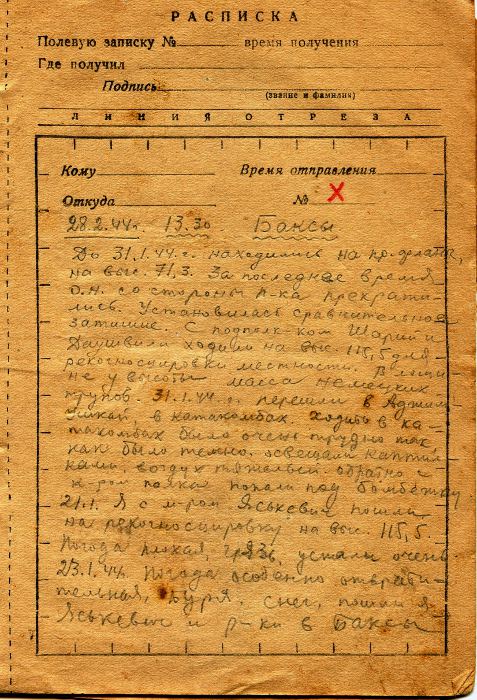 РАСПИСКА
Полевую записку № время получения
Где получил
Подпись
(звание и фамилия)
ЛИНИЯ ОТРЕЗА
Кому Время отправления
Откуда № X
28.2.44 г. 13.30 Баксы
До 31.1.44 г. находились на пр.
на выс. 71,3. За последнее время
О.Н. со стороны п-ка прекрати-
лись. Установилась сравнительное
затишие. С подполк-ком Шарий и
ходили на выс. 115,5 для
рекогносцировки местности. В
не у высоты масса немецких
трупов. 31.1.44 г. перешли в Аджим
ушкай, в катакомбах. Ходить в ка-
такомбах было очень трудно так
как было темно, освещали каптил-
ками, воздух тяжелый. Обратно с
к-ром полка попали под бомбежку
21.1. Я с м-ром Яськевич пошли
на рекогносцировку на выс. 115,5.
Погода плохая, грязь, устали очень.
23.1.44. Погода особенно отврати-
тельная, буря, снег, пошли я
Яськевич и р-ки в Баксы